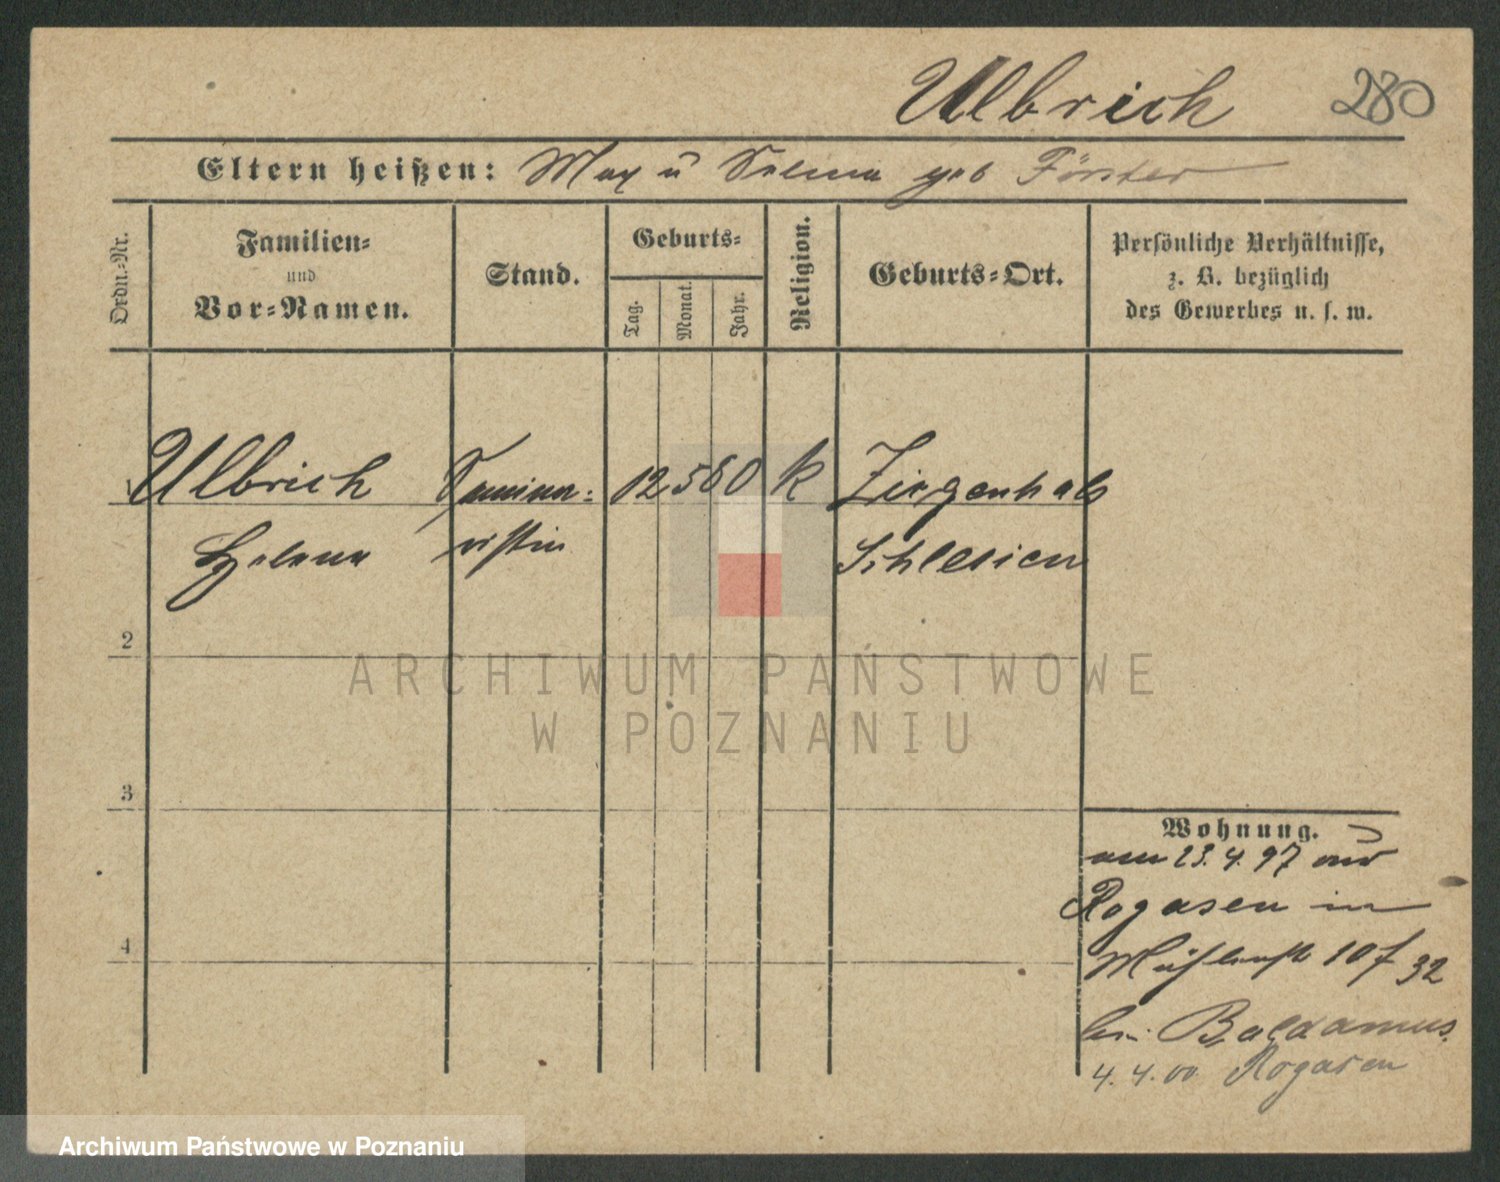 Ulbrich 280
Eltern heißen: Max u Selma geb Förster
Ordn.-Nr.
Familien-
und
Vor-Namen.
Stand.
Geburts-
Tag.
Monat.
Jahr.
Religion.
Geburts-Ort.
Persönliche Verhältnisse,
z. B. bezüglich
des Gewerbes u. s. w.
1
Ulbrich Semina- 12 5 80 k Ziegenhals
Helena ristin Schlesien
2
3
4
Wohnung.
am 23.4.97 aus
Rogasen in
Mühlenstr 10 f 32
bei Baldamus.
4.4.00 Rogasen
ARCHIWUM PAŃSTWOWE
W POZNANIU
Archiwum Państwowe w Poznaniu